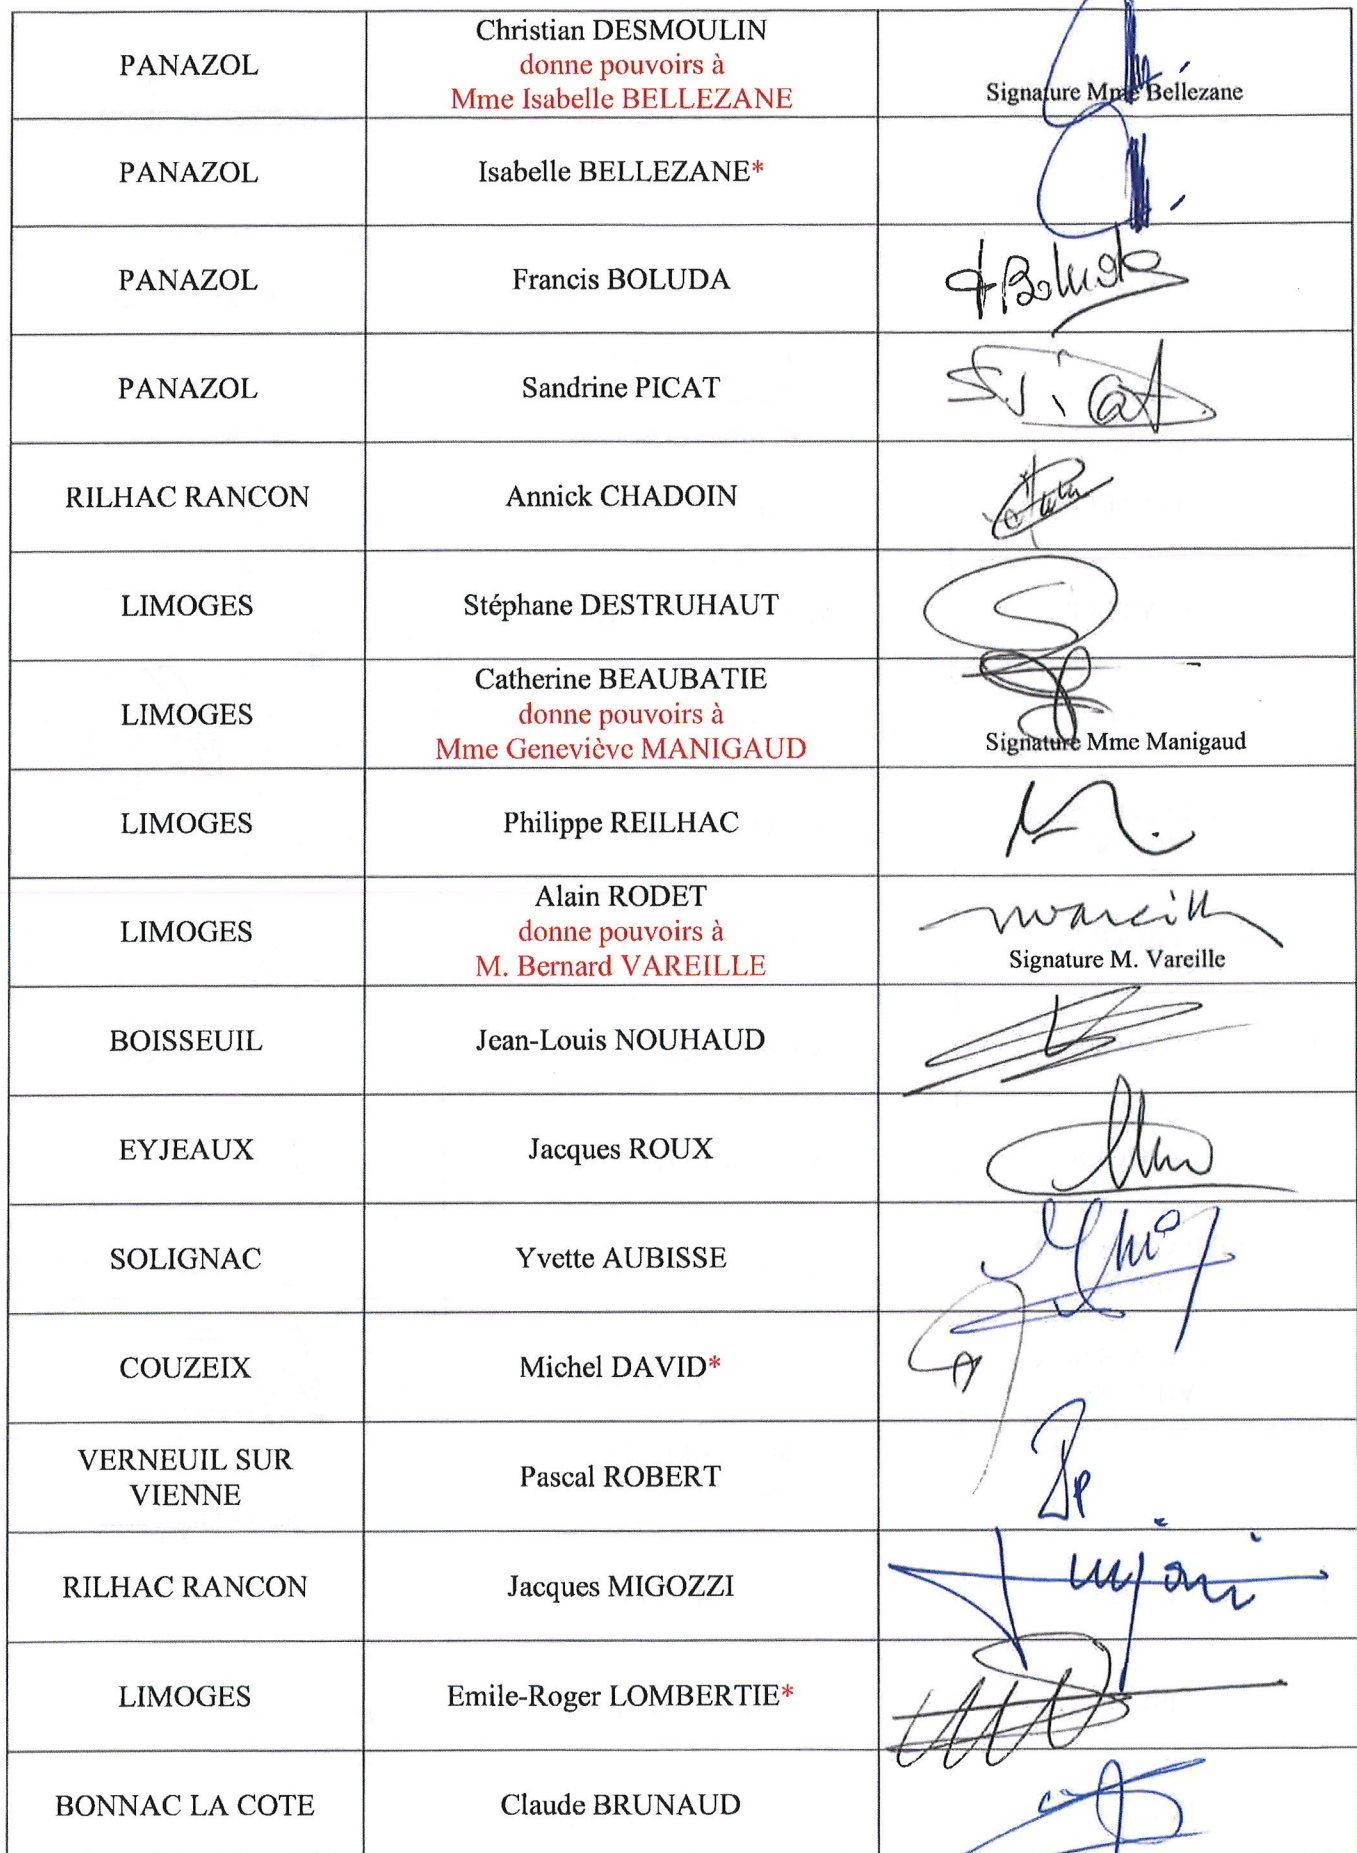 PANAZOL
Christian DESMOULIN
donne pouvoirs à
Mme Isabelle BELLEZANE
Signature Mme Bellezane
PANAZOL
Isabelle BELLEZANE*
PANAZOL
Francis BOLUDA
F Boluda
PANAZOL
Sandrine PICAT
RILHAC RANCON
Annick CHADOIN
LIMOGES
Stéphane DESTRUHAUT
LIMOGES
Catherine BEAUBATIE
donne pouvoirs à
Mme Geneviève MANIGAUD
Signature Mme Manigaud
LIMOGES
Philippe REILHAC
LIMOGES
Alain RODET
donne pouvoirs à
M. Bernard VAREILLE
Signature M. Vareille
BOISSEUIL
Jean-Louis NOUHAUD
EYJEAUX
Jacques ROUX
SOLIGNAC
Yvette AUBISSE
COUZEIX
Michel DAVID*
VERNEUIL SUR
VIENNE
Pascal ROBERT
RILHAC RANCON
Jacques MIGOZZI
LIMOGES
Emile-Roger LOMBERTIE*
BONNAC LA COTE
Claude BRUNAUD